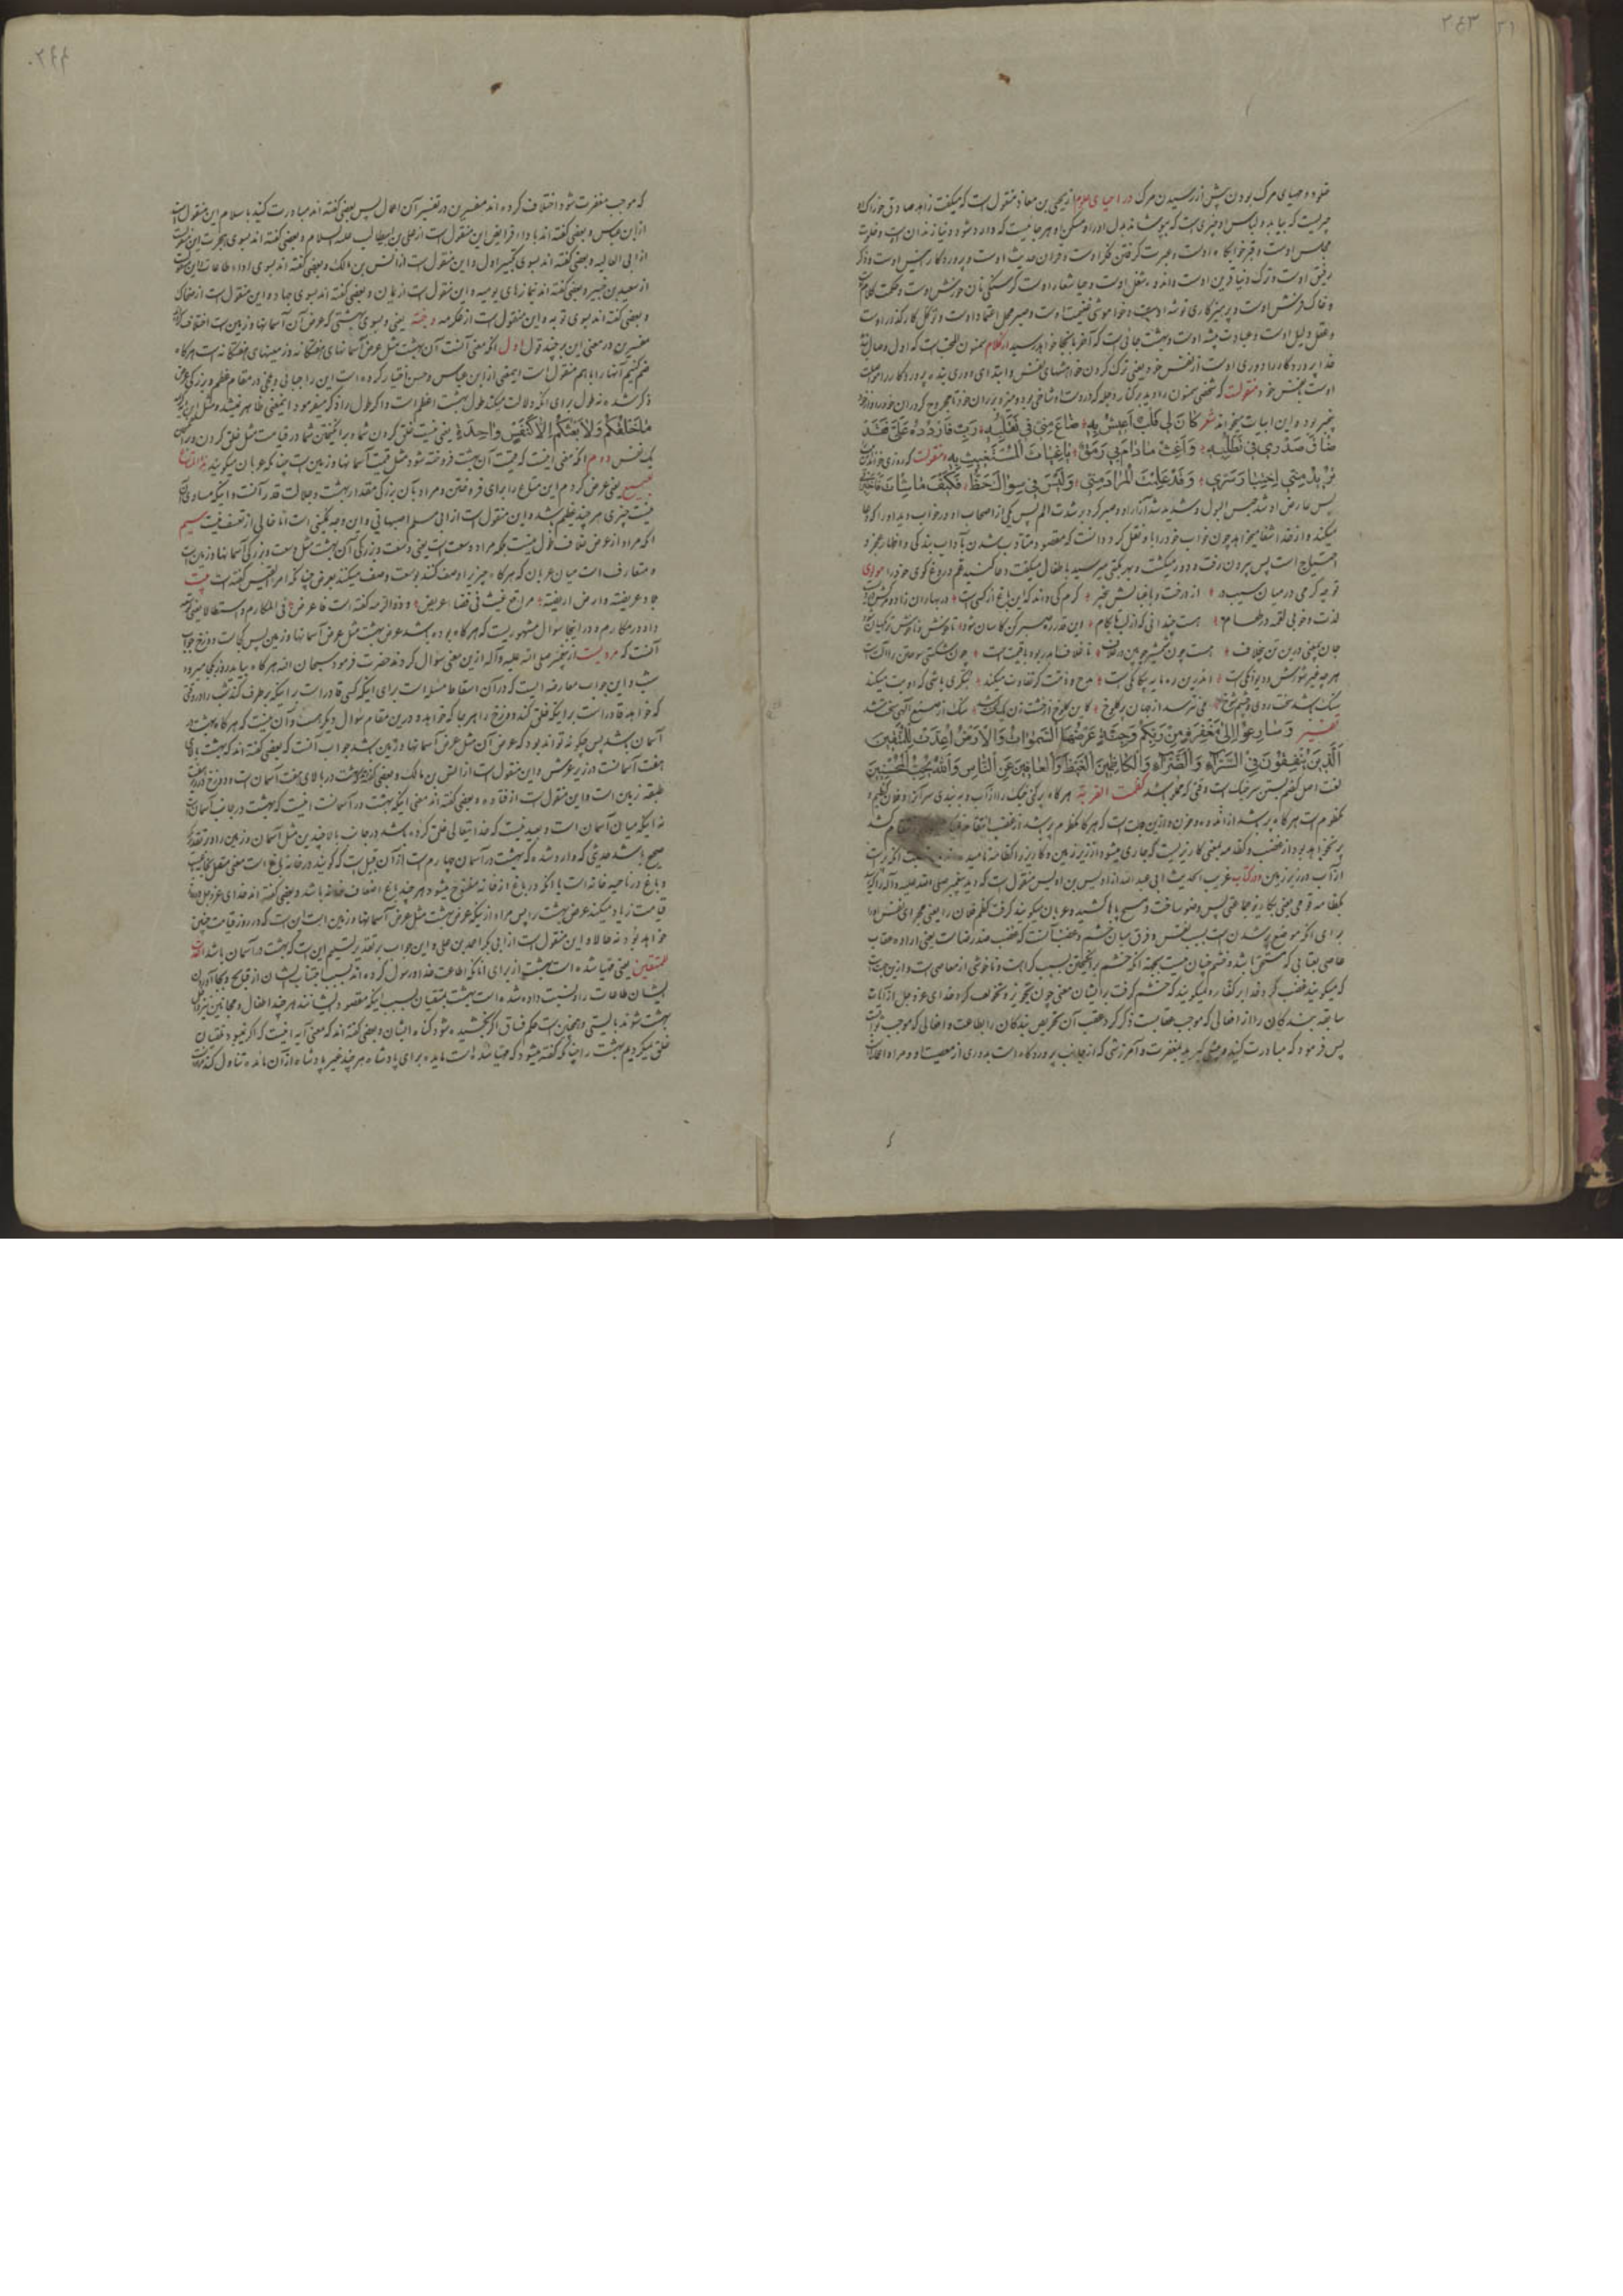 ۲۴۳
خلود و مهیای مرگ بودن پیش از رسیدن مرگ در احیای علوم از یحیی بن معاذ منقول است که میگفت زاهد صادق خوراک او
چیزیست که بیابد و لباس او چیزی است که بپوشاند بدن او را و مسکن او هر جائیست که وارد شود و دنیا زندان اوست و خلوت
مجلس اوست و قبر خوابگاه اوست و عبرت گرفتن فکر اوست و قرآن حدیث اوست و پروردگار انیس اوست و ذکر
رفیق اوست و ترک دنیا قرین اوست و اندوه شغل اوست و حیا شعار اوست گرسنگی نان خورش اوست و حکمت کلام اوست
و خاک فرش اوست و پرهیزکاری توشه اوست و خواموشی غنیمت اوست و صبر محل اعتماد اوست و توکل کارگذار اوست
و عقل دلیل اوست و عبادت پیشه اوست و بهشت جائی است که آخر بآنجا خواهد رسید از کلام سمنون المحب است که اول وصال بنده
خدا پروردگار را دوری اوست از نفس خود یعنی ترک کردن خواهشهای نفس و ابتدای دوری بنده پروردگار را مواصلت
اوست بنفس خود منقولست که شخصی سمنون را دید بر کنار دجله که در دست او شاخی بود و میزد بر ران خود تا مجروح کرد ران خود را و از خود
بیخبر بود و این ابیات میخواند شعر کان لی قلب اعیش به ضاع منی فی تقلبه رب فاردده علی فقد
ضاق صدری فی تطلبه واغث مادام بی رمق یاغیاث المستغیث به منقولست که روزی
برید منی اختبار سری وقد علمت المراد منی ولیس فی سواک حظ فکیف ما شئت فاختبرنی
پس عارض او شد حبس البول و شدید شد آزار او و صبر کرد بر شدت الم پس یکی از اصحاب او در خواب دید او را که دعا
میکند و از خدا شفا میخواهد چون خواب خود را باو نقل کرد دانست که مقصود متأدب شدن بآداب بندگی و اظهار عجز و
احتیاج است پس بیرون رفت و دور میگشت و بهر مکتبی میرسید باطفال میگفت دعا کنید عم دروغ گوی خود را مولوی
تو چه کرمی در میان سیب در از درخت و باغبانش بیخبر کرم کی داند که این باغ از کی است در بهاران زاد و مرگش در دی است
لذت و خوبی لقمه در طعام هست چندانی که از لب تا بکام این قدر را صبر کن کاسان شود
جان یعنی درین تن بیخلاف هست چون شمشیر چوبین در غلاف تا غلاف اندر بود باقیمت است چون شکستی سوختن را آلت است
هر چه غیر شورش و دیوانگی است اندرین ره مایه بیگانگی است مدح و ذمت گر تفاوت میکند بتگری باشی که او بت میکند
سنگ باشد سخت روی و چشم شوخ می نترسد از جهان پر کلوخ کاین کلوخ از خشت زن یک لخت شد سنگ از صنع الهی سخت شد
تفسیر وَسارِعُوا اِلىٰ مَغْفِرَةٍ مِنْ رَبِّكُمْ وَجَنَّةٍ عَرْضُهَا السَّمٰوَاتُ وَالْاَرْضُ اُعِدَّتْ لِلْمُتَّقِينَ
اَلَّذِينَ يُنْفِقُونَ فِي السَّرَّاءِ وَالضَّرَّاءِ وَالْكَاظِمِينَ الْغَيْظَ وَالْعَافِينَ عَنِ النَّاسِ وَاللهُ يُحِبُّ الْمُحْسِنِينَ
لغت اصل کظم بستن سر خیک است وقتی که مملو باشد کظمت القربة هر گاه پر کنی خیک را از آب و به بندی سر آنرا و فلان کظیم و
مکظوم است هر گاه پر باشد از اندوه و حزن و ازین جهت است که هر گاه مکظوم پر باشد از غضب
پر نخواهد بود از غضب و کظامه یعنی کاریز است که جاری میشود از زیر زمین و کاریز را کظامه نامیدند
از آب در زیر زمین در کتاب غریب الحدیث ابی عبد الله از اوس بن اوس منقول است که دید پیغمبر صلی الله علیه و آله را که آمد
بکظامه قومی یعنی بکاریز جماعتی پس وضو ساخت و مسح پاها کشید و عربان میگویند گرفت کظم فلان را یعنی مجرای نفس او را
برای آنکه موضع پر شدن است بسبب نفس و فرق میان خشم و غضب آنست که غضب ضد رضاست یعنی اراده عقاب
عاصی بعقابی که مستحق باشد و خشم چنان نیست بجهة آنکه خشم برانگیختن بسبب کراهت و ناخوشی از معاصی است و ازین جهت است
که میگویند غضب کرد خدا بر کفار و نمیگویند که خشم گرفت بر ایشان معنی چون تحذیر و تخویف کرد خدای عز و جل از آیات
سابقه بندگان را از افعالی که موجب عقابست ذکر کرد عقب آن تحریص بندگان را بطاعت و افعالی که موجب ثوابست
پس فرمود که مبادرت کنید و پیشی گیرید بمغفرت و آمرزشی که از جانب پروردگار است بدوری از معصیت او و مراد اعمالست
۲۴۴
که موجب مغفرت شود اختلاف کرده اند مفسرین در تفسیر آن اعمال پس بعضی گفته اند مبادرت کنید باسلام این منقول است
از ابن عباس و بعضی گفته اند باداء فرایض این منقول است از علی بن ابیطالب علیه السلام و بعضی گفته اند بسوی هجرت این منقولست
از ابی العالیه و بعضی گفته اند بسوی تکبیر اول و این منقول است از انس بن مالک و بعضی گفته اند بسوی اداء طاعات این منقولست
از سعید بن جبیر و بعضی گفته اند نمازهای یومیه و این منقول است از یمان و بعضی گفته اند بسوی جهاد و این منقول است از ضحاک
و بعضی گفته اند بسوی توبه و این منقول است از عکرمه و جنة یعنی و بسوی بهشتی که عرض آن آسمانها و زمین است اختلاف کرده اند
مفسرین در معنی این بر چند قول اول آنکه معنی آنست آن بهشت مثل عرض آسمانهای هفتگانه و زمینهای هفتگانه است هر گاه
ضم کنیم آنها را باهم منقول است اینمعنی از ابن عباس و حسن و اختیار کرده است این را جبائی و بلخی در مقام عظم و بزرگی عرض
ذکر شد نه طول برای آنکه دلالت میکند طول بهشت اعظم است و اگر طول را ذکر میفرمود اینمعنی ظاهر نمیشد و مثل این است
مَا خَلْقُكُمْ وَلَا بَعْثُكُمْ اِلَّا كَنَفْسٍ وَاحِدَةٍ یعنی نیست خلق کردن شما و برانگیختن شما در قیامت مثل خلق کردن و برانگیختن
یک نفس دوم آنکه معنی اینست که قیمت آن بهشت فروخته شود مثل قیمت آسمانها و زمین است چنانکه عربان میگویند
للبیع یعنی عرض کردم این متاع را برای فروختن و مراد بآن بزرگی مقدار بهشت و جلالت قدر آنست و اینکه مساوی آن
نیست چیزی هر چند عظیم باشد و این منقول است از ابی مسلم اصبهانی و این وجه نیکی است اما خالی از تعسف نیست سیم
آنکه مراد از عرض خلاف طول نیست بلکه مراد وسعت است یعنی وسعت و بزرگی آن بهشت مثل وسعت و بزرگی آسمانها و زمین است
و متعارف است میان عربان که هر گاه چیزیرا وصف کنند بوسعت وصف میکنند بعرض چنانکه امرء القیس گفته است بیت
بلاد عریضة وارض اریضة مدافع غیث فی فضاء عریض و ذو الرمه گفته است فاعرض فی المکارم واستطالا یعنی
داد در مکارم و در اینجا سؤال مشهوریست که هر گاه بوده باشد عرض بهشت مثل عرض آسمانها و زمین پس کجاست دوزخ جواب
آنست که مرویست از پیغمبر صلی الله علیه و آله ازین معنی سؤال کردند حضرت فرمود سبحان الله هر گاه بیاید روز بکجا میرود
شب و این جواب معارضه ایست که در آن اسقاط مسئله است برای اینکه کسی قادر است بر اینکه بر طرف کند شب را در وقتی
که خواهد قادر است بر اینکه خلق کند دوزخ را هر جا که خواهد و درین مقام سؤال دیگر هست و آن نیست که هر گاه بهشت در
آسمان باشد پس چگونه تواند بود که عرض آن مثل عرض آسمانها و زمین باشد جواب آنست که بعضی گفته اند که بهشت بالای
هفت آسمانست در زیر عرش و این منقول است از انس بن مالک و بعضی گفته اند بهشت در بالای هفت آسمان است و دوزخ در زیر هفت
طبقه زمین است و این منقول است از قتاده و بعضی گفته اند معنی اینکه بهشت در آسمانست اینست که بهشت در جانب آسمانست
نه اینکه میان آسمان است و بعید نیست که خدایتعالی خلق کرده باشد در جانب بالا چندین مثل آسمان و زمین را و بر تقدیری که
صحیح باشد حدیثی که وارد شده که بهشت در آسمان چهارم است از آن قبیل است که گویند در خانه باغ است معنی متصل بخانه است
و باغ در ناحیه خانه است یا آنکه در باغ از خانه مفتوح میشود هر چند باغ اضعاف خانه باشد و بعضی گفته اند خدای عز و جل در روز
قیامت زیاد میکند عرض بهشت را پس مراد از اینکه عرض بهشت مثل عرض آسمانها و زمین است این است که در روز قیامت چنین
خواهد بود نه حالا و این منقول است از ابی بکر احمد بن علی و این جواب بر تقدیر تسلیم این است که بهشت در آسمان باشد اعدت
للمتقین یعنی مهیا شده است بهشت از برای آنانکه اطاعت خدا و رسول کرده اند بسبب اجتناب ایشان از قبایح و بجا آوردن
ایشان طاعات را و نسبت داده شده است بهشت بمتقیان بسبب اینکه مقصود ایشانند هر چند اطفال و مجانین نیز داخل
بهشت شوند بالتبع و همچنین است حکم فساق اگر بخشیده شود گناه ایشان و بعضی گفته اند که معنی آیه اینست که اگر نمیبود متقیان
خلق نمیکردیم بهشت را چنانکه گفته میشود که مهیا شده است مایده برای پادشاه هر چند غیر پادشاه از آن مائده تناول کند